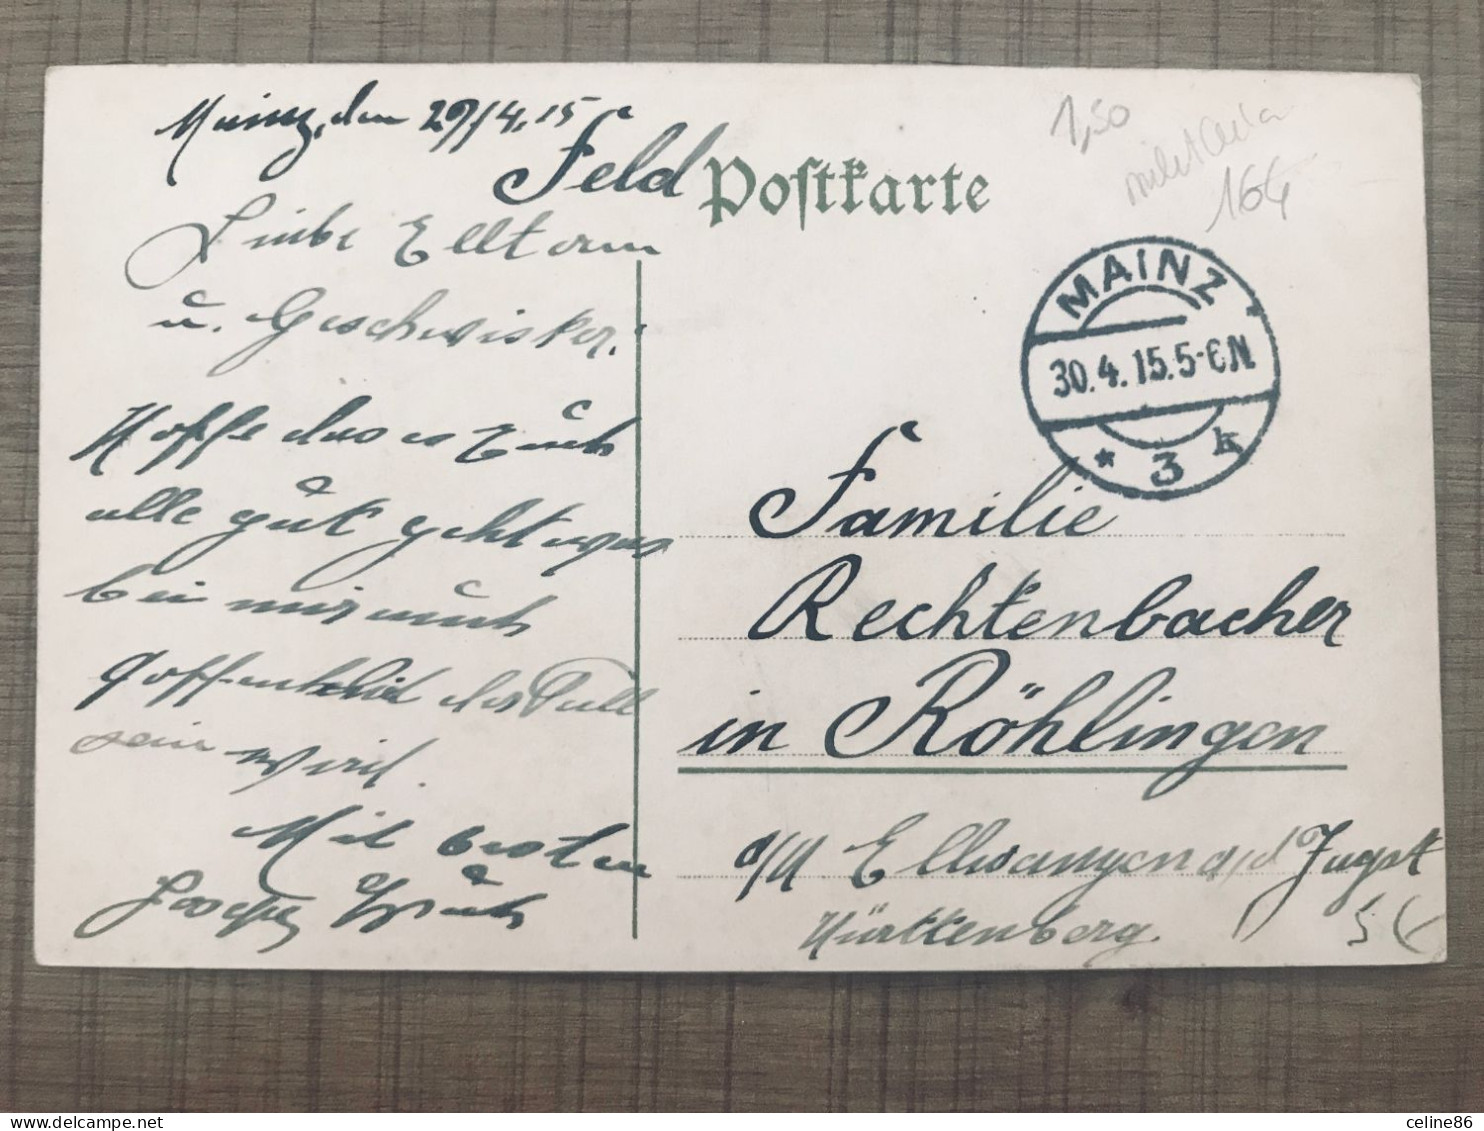 Mainz, den 29/4. 15
Feld Postkarte
1,50
militaria
164
Liebe Elltern
u. Geschwister.
MAINZ
30.4.15.5-6N
* 3 k
Hoffe das es Euch
alle gut geht was
bei mir auch
hoffentlich der Fall
sein wird.
Mit besten
Joseph
Familie
Rechtenbacher
in Röhlingen
O/A Ellwangen a/d Jagst
Württenberg.
celine86